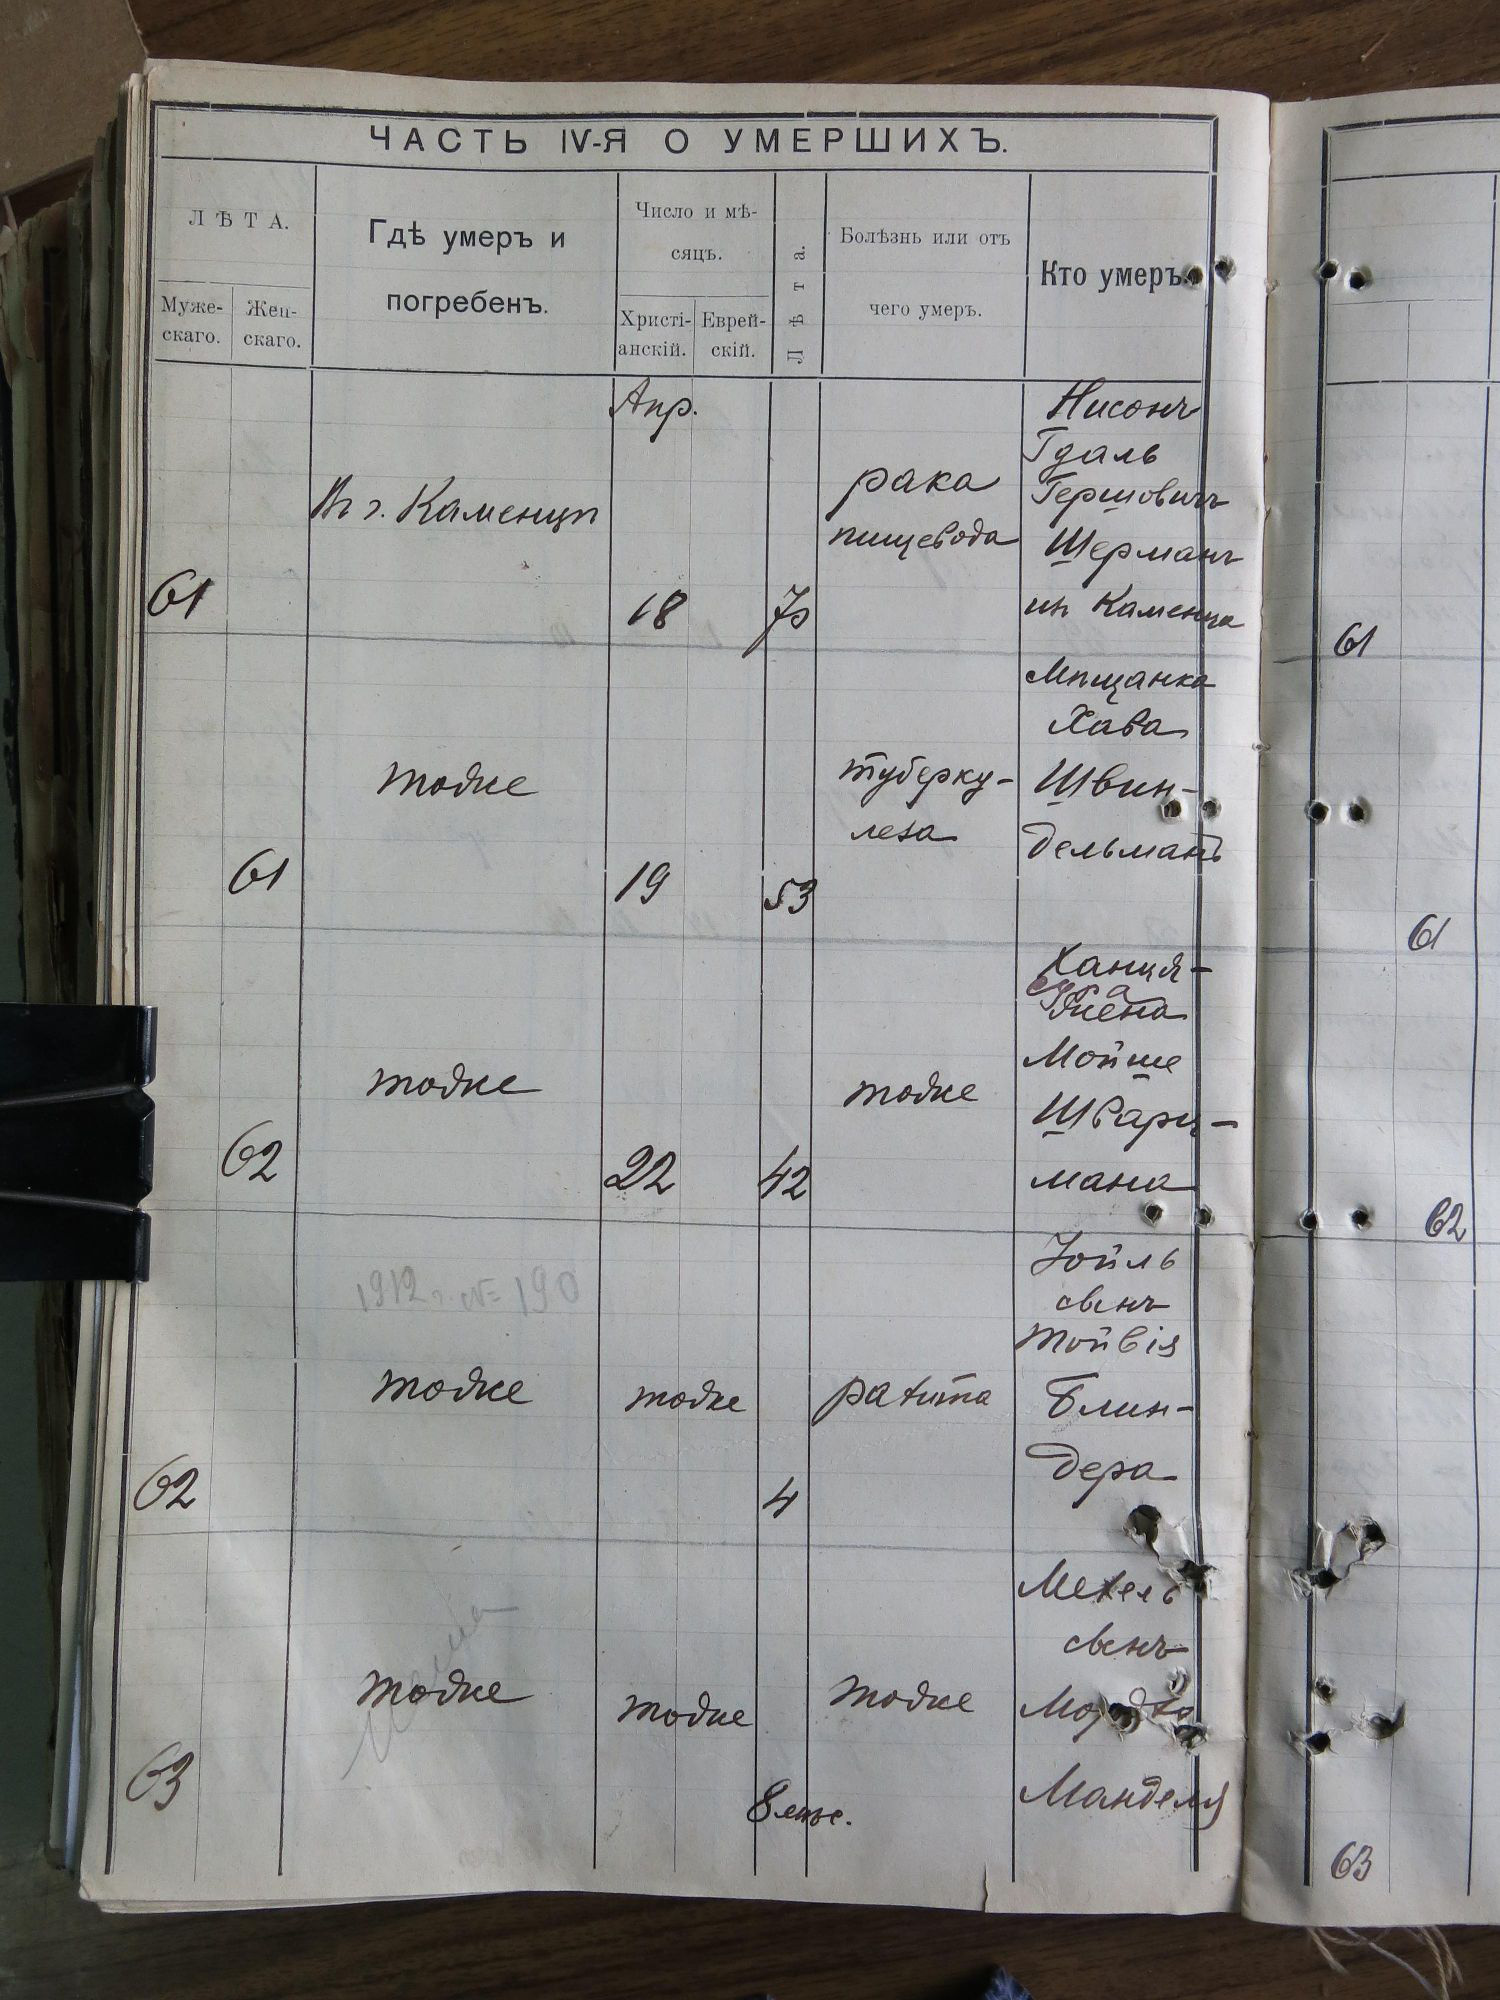 ЧАСТЬ IV-Я О УМЕРШИХЪ.
ЛѢТА.
Муже-
скаго.
Жен-
скаго.
Гдѣ умеръ и
погребенъ.
Число и мѣ-
сяцъ.
Христі-
анскій.
Еврей-
скій.
Лѣта.
Болѣзнь или отъ
чего умеръ.
Кто умеръ.
61
Въ г. Каменцѣ
Апр.
18
рака
пищевода
Нисонъ
Гдаль
Гершовичъ
Шерманъ
изъ Каменца
61
61
тоже
19
53
туберку-
леза
Мѣщанка
Хава
Швин-
дельманъ
61
62
тоже
22
42
тоже
Ханця-
Сура
жена
Мойше
Шварц-
мана
62
1912 г. № 190
62
тоже
тоже
4
рахита
Іойль
сынъ
Тойвія
Блин-
дера
63
тоже
тоже
8 мѣс.
тоже
Мехель
сынъ
Манделя
63